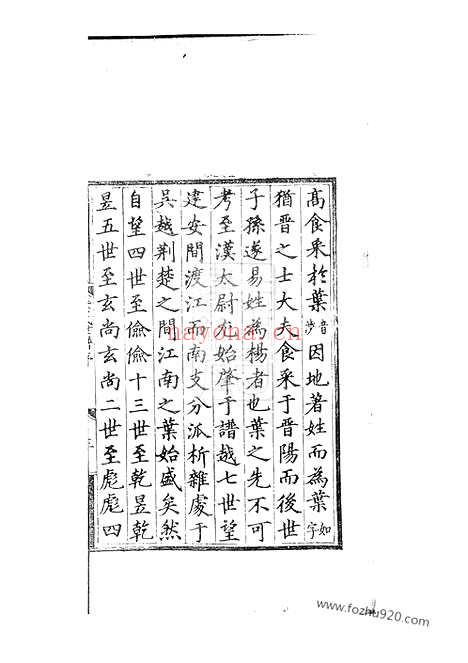 高食采於葉音沙因地著姓而為葉如字
猶晉之士大夫食采于晉陽而後世
子孫遂易姓為楊者也葉之先不可
考至漢太尉尤始肇于譜越七世望
建安間渡江而南支分派析雜處于
吳越荆楚之間江南之葉始盛矣然
自望四世至儉儉十三世至乾昱乾
昱五世至玄尚玄尚二世至彪彪四
nayona.cn
www.fozhu920.com